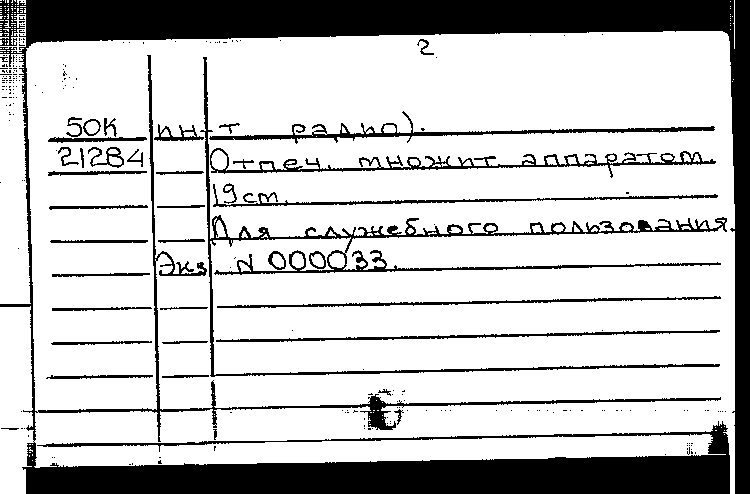 2
50К ин-т радио).
21284 Отпеч. множит. аппаратом.
19 ст.
Для служебного пользования.
Экз. N 000033.